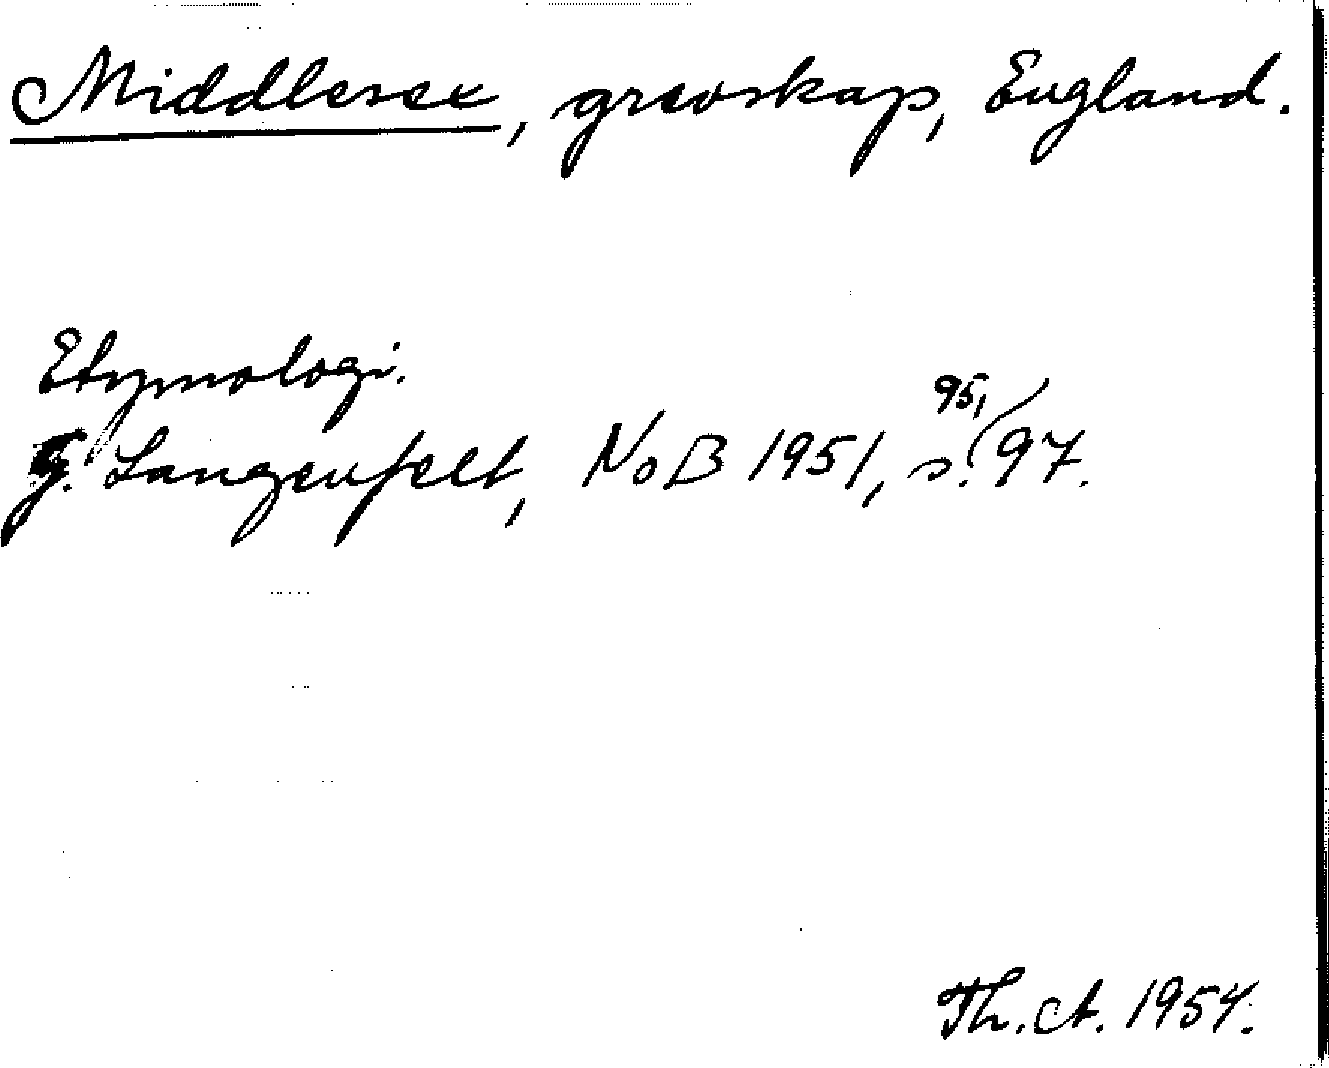 Middlesex, grevskap, England.
Etymologi.
G. Langenfelt, NoB 1951, s. 95, 97.
Th. A. 1954.